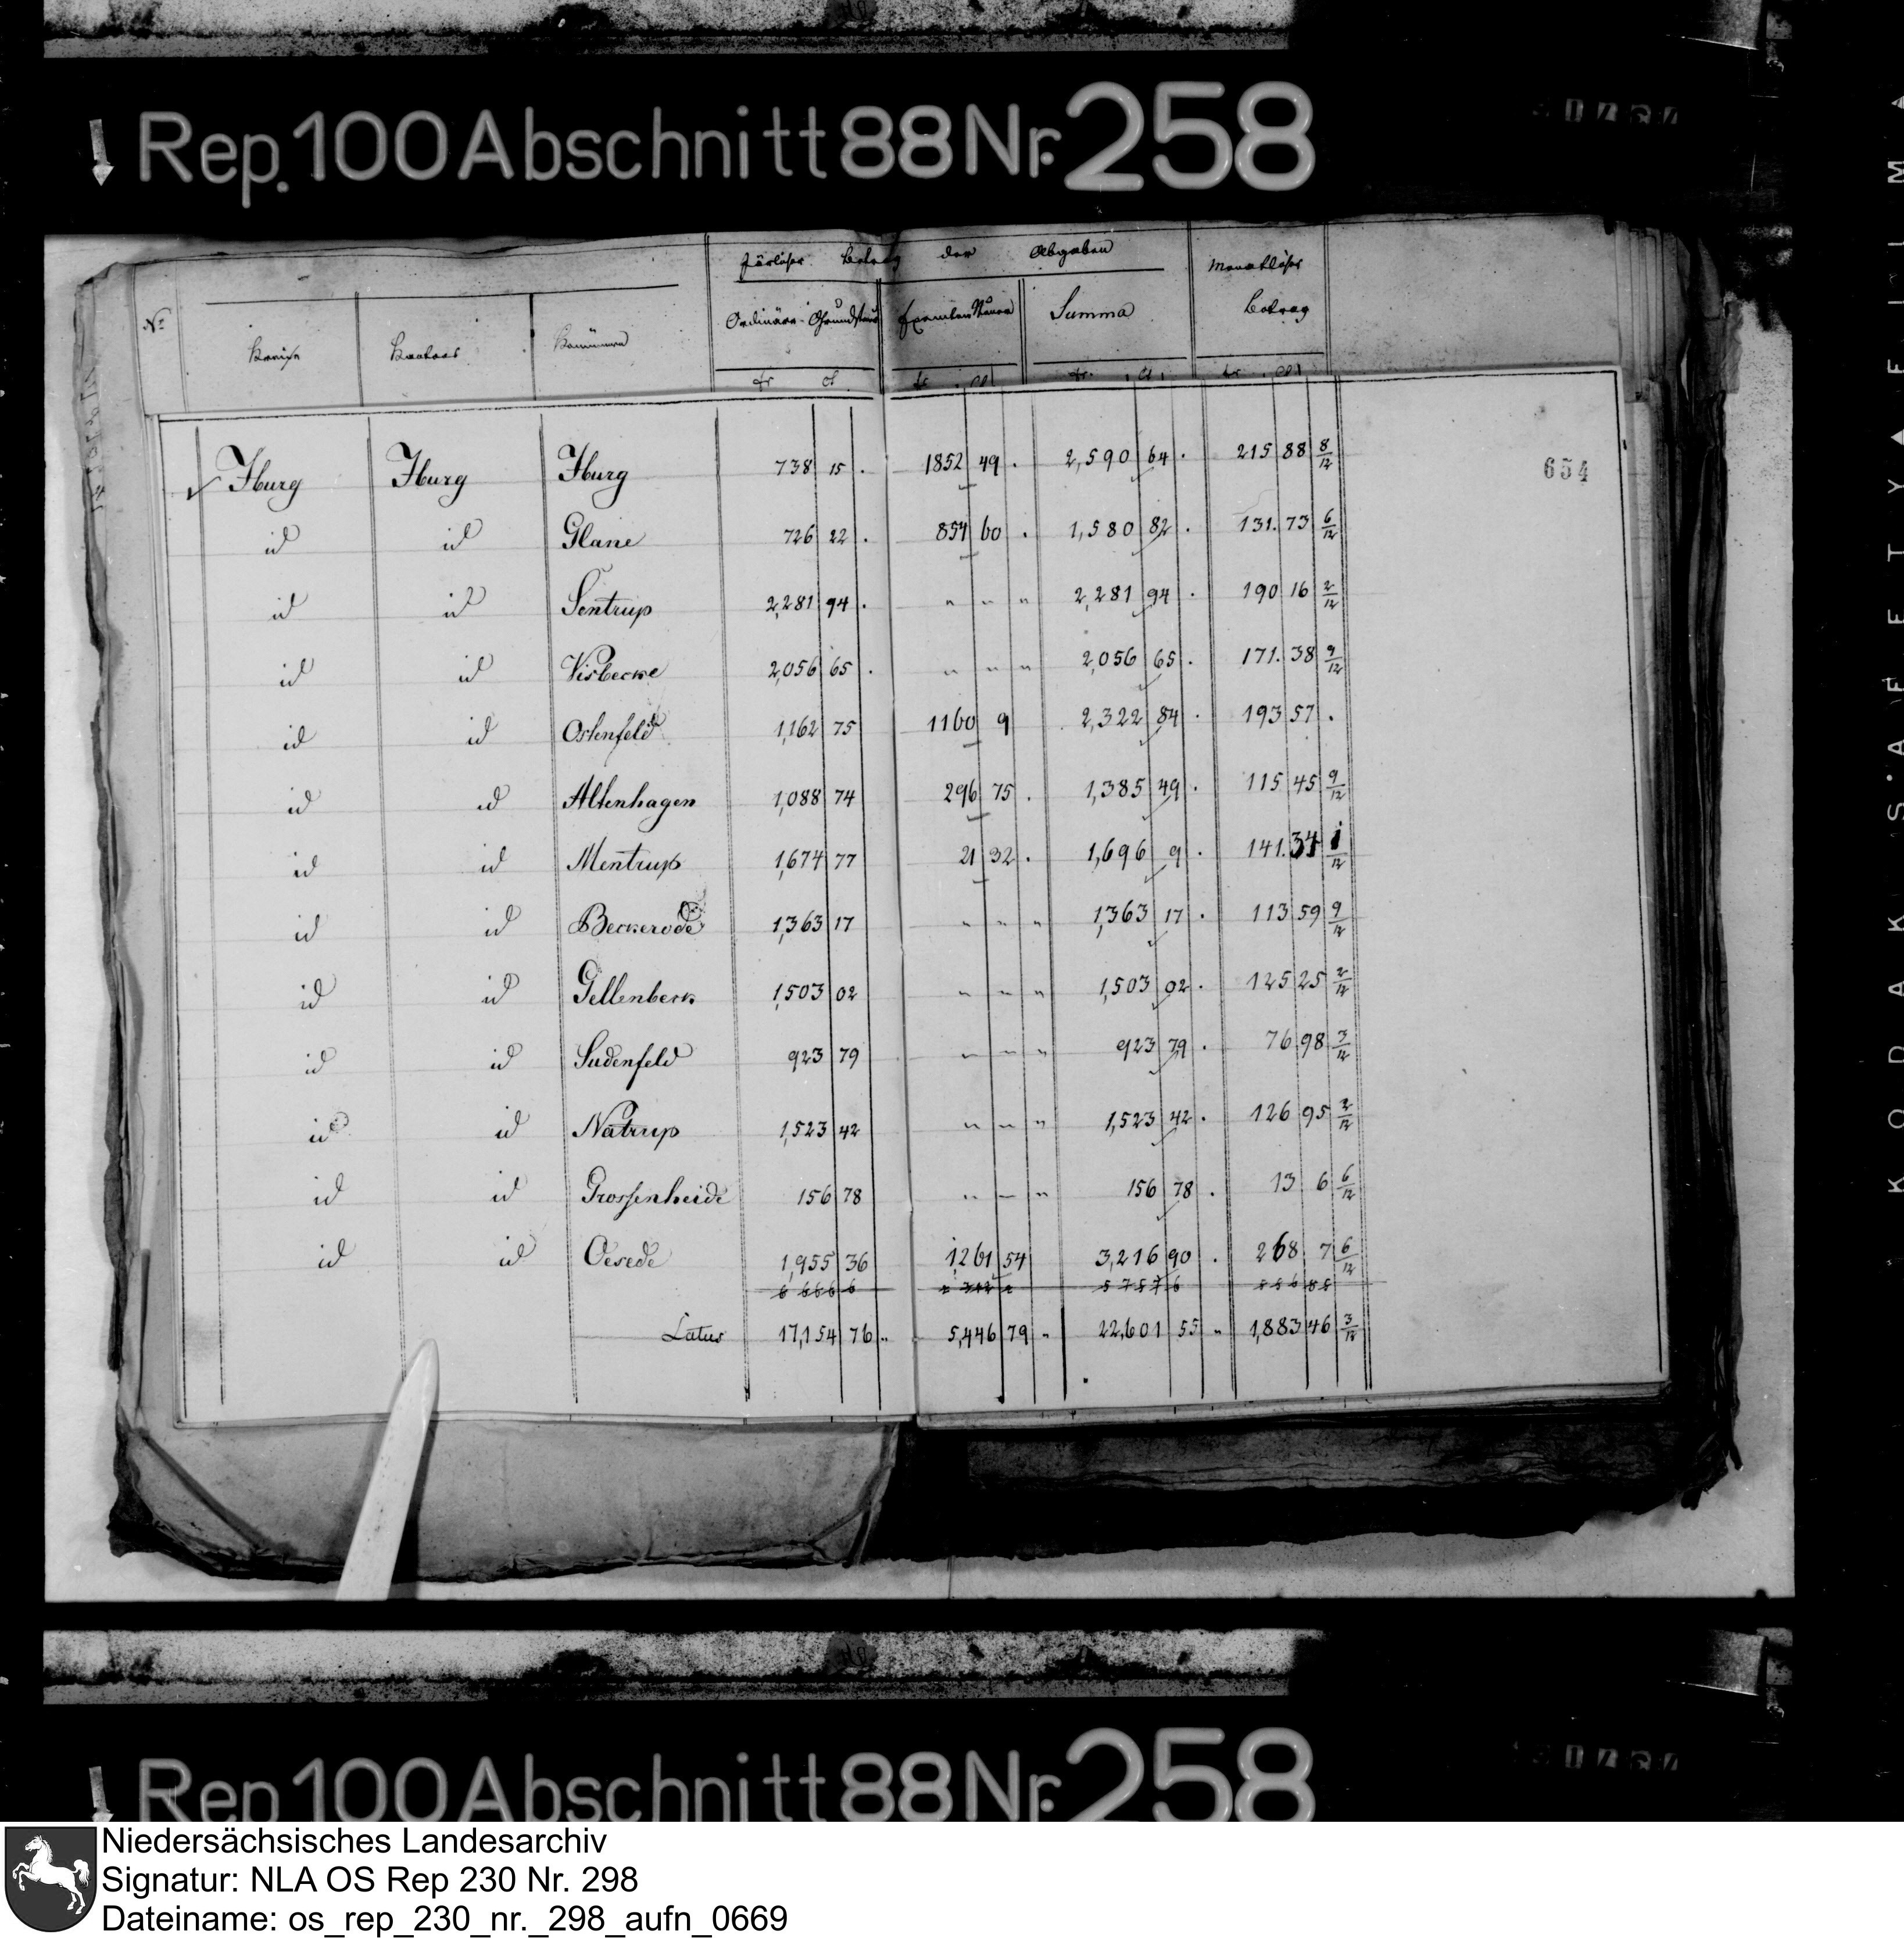 Rep. 100 Abschnitt 88 Nr. 258
Järlicher Betrag der Abgaben
Monatlicher Betrag
No. Kreise Kantons Kommunen Ordinäre Grundsteuer Exemten Steuer Summa
fr ct fr ct fr. ct. fr. ct
654
Iburg Iburg Iburg 738 15 . 1852 49 . 2,590 64 . 215 88 8/12
id id Glane 726 22 . 854 60 . 1,580 82 . 131. 73 6/12
id id Sentrup 2,281 94 . " " " 2,281 94 . 190 16 2/12
id id Visbecke 2,056 65 . " " " 2,056 65 . 171. 38 9/12
id id Ostenfeld 1,162 75 1160 9 2,322 84 . 193 57 .
id id Altenhagen 1,088 74 296 75 . 1,385 49 . 115 45 9/12
id id Mentrup 1,674 77 21 32 . 1,696 9 . 141. 34 1/12
id id Beckerode 1,363 17 " " " 1,363 17 . 113 59 9/12
id id Gellenbeck 1,503 02 " " " 1,503 02 . 125 25 2/12
id id Sudenfeld 923 79 " " " 923 79 . 76 98 3/12
id id Natrup 1,523 42 " " " 1,523 42 . 126 95 2/12
id id Grossenheide 156 78 " " " 156 78 . 13 6 6/12
id id Oesede 1,955 36 1,261 54 3,216 90 . 268 7 6/12
Latus 17,154 76 " 5,446 79 " 22,601 55 " 1,883 46 3/12
Rep 100 Abschnitt 88 Nr. 258
KODAK S'AFETY FILM
Niedersächsisches Landesarchiv
Signatur: NLA OS Rep 230 Nr. 298
Dateiname: os_rep_230_nr._298_aufn_0669